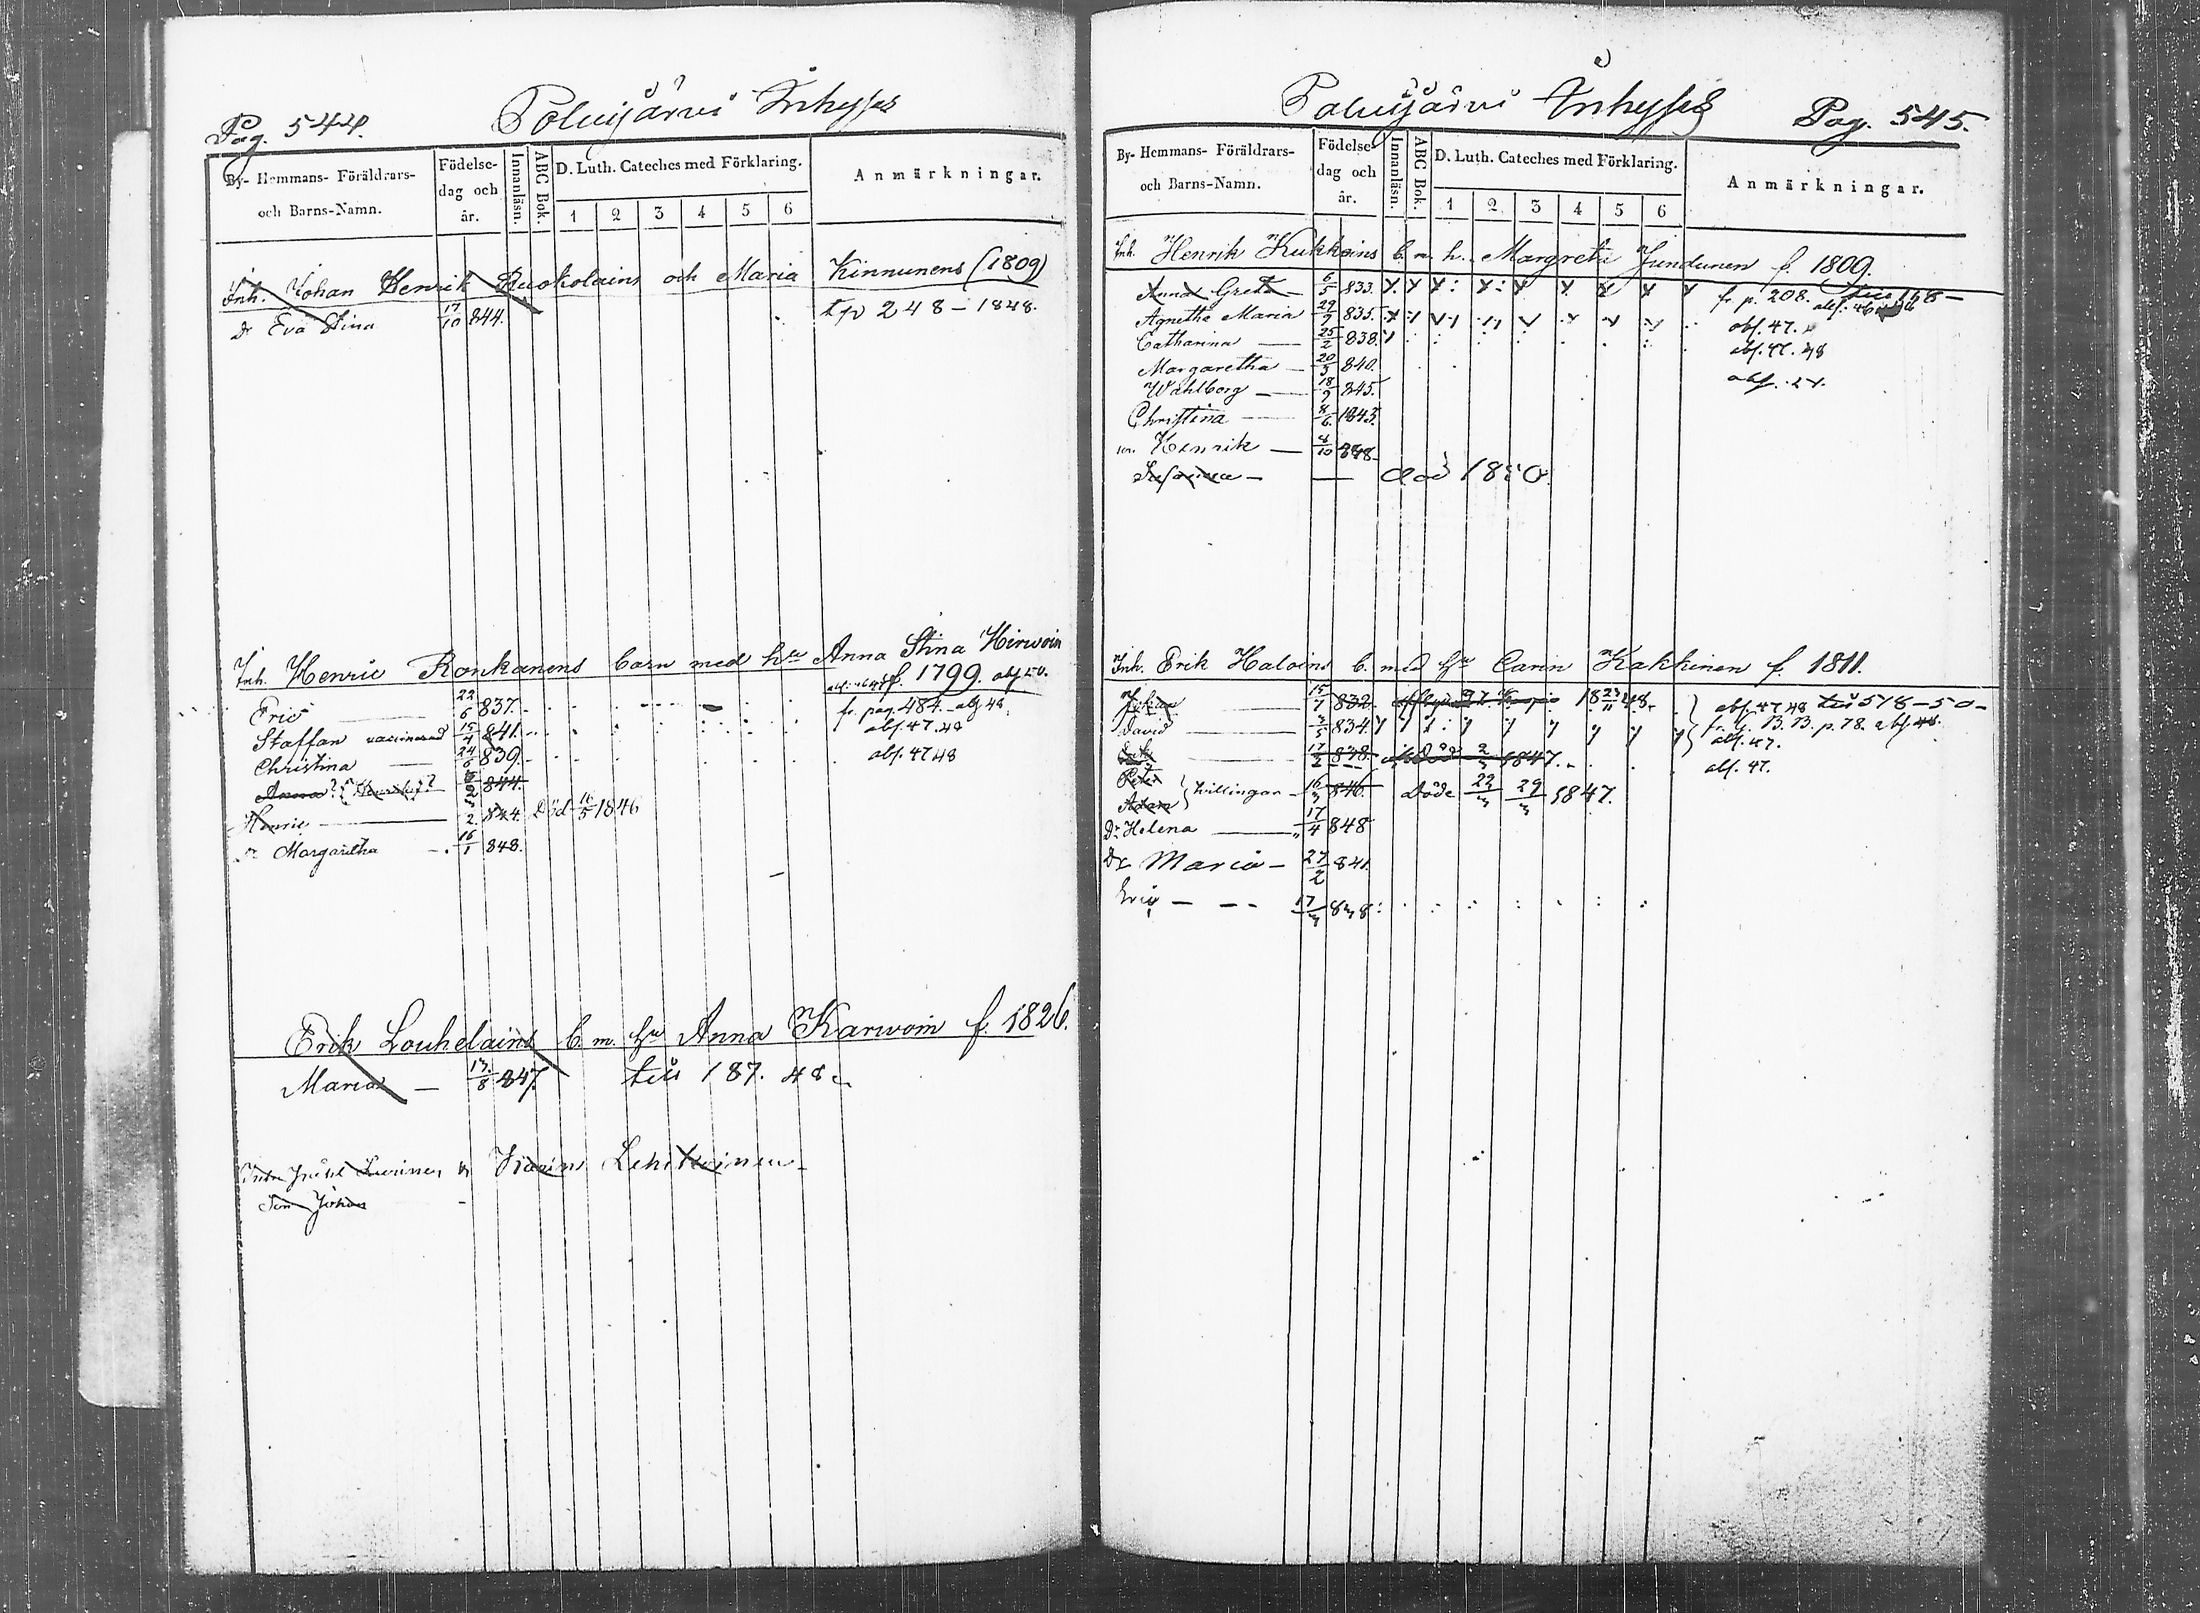 Pag. 544.
Polvijärvi Inhyses
By- Hemmans- Föräldrars- och Barns-Namn.
Födelse-dag och år.
Innanläsn.
ABC Bok.
D. Luth. Cateches med Förklaring.
1 2 3 4 5 6
Anmärkningar.
Inh. Johan Henrik Ruokolains och Maria Kinnunens (1809)
Dr Eva Stina 17/10 844. t p 248 - 1848.
Inh. Henric Ronkanens barn med hu Anna Stina Hirvoin
f. 1799. abs 50.
Eric 22/6 837. fr. pag. 484. abs 48
Staffan vaccinerad 15/4 841. abs. 47. 48
Christina 24/6 839. abs. 47 48
Anna 844.
Henric 2 844 Död 16/5 1846
Dr Margaretha 16/1 848.
Erik Louhelains b. m. hu Anna Karvoin f. 1826.
Maria 13/8 847. till 187. 48
Karin
Son Johan
Polvijärvi Inhyses
Pag. 545.
By- Hemmans- Föräldrars- och Barns-Namn.
Födelse-dag och år.
Innanläsn.
ABC Bok.
D. Luth. Cateches med Förklaring.
1 2 3 4 5 6
Anmärkningar.
Inh. Henrik Kukkoins b. m. h. Margreta Jundunen f. 1809.
Anna Greta 6/5 833. x x x x x x x x fr. p. 208.
Agnetha Maria 29/9 835. abs. 47.
Catharina 25/2 838. abs. 47. 48
Margaretha 20/3 840.
Wahlborg 18/9 845.
Christina 8/6 1843.
son Henrik 4/10 848
död 1850
Inh. Erik Haloins b. med hu Carin Kakkinen f. 1811.
Johan 15/7 832. 18 23/11 48. abs. 47 48 till 578-50-
David 3/5 834. fr. K. B. B. p. 78. abs 48.
Erik 17/2 838. Död 2/3 1847. abs. 47.
Peter
Adam } tvillingar 16/3 846 Döde 22/3 29/3 1847.
Dr Helena 17/4 848
Dr Maria 27/2 841.
Eric 17/3 838